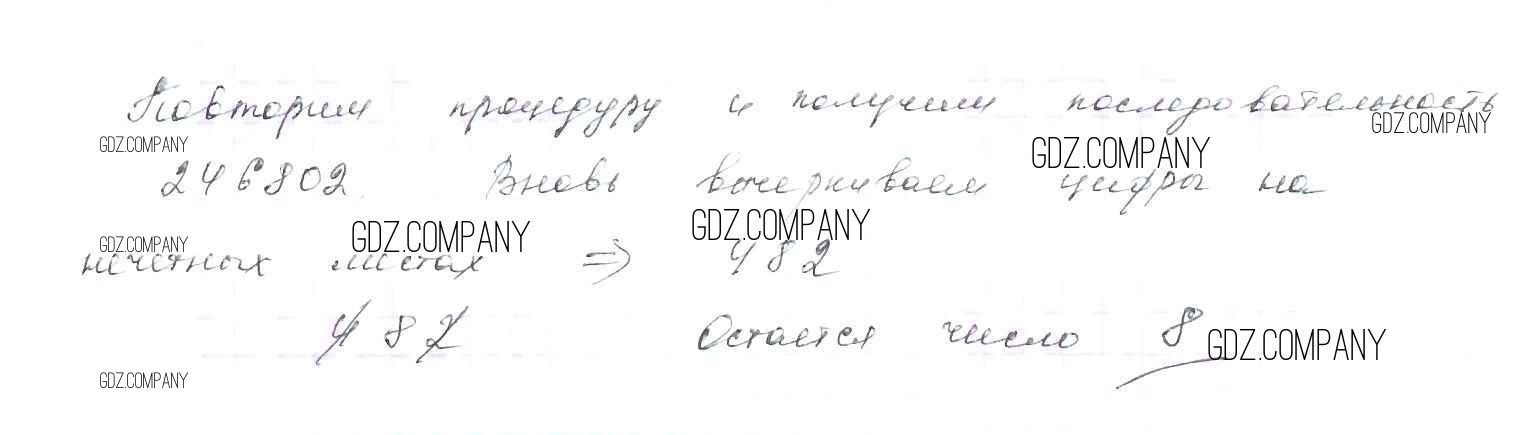 Повторим процедуру и получим последовательность
GDZ.COMPANY
GDZ.COMPANY
GDZ.COMPANY
246802. Вновь вычеркиваем цифры на
GDZ.COMPANY
GDZ.COMPANY
GDZ.COMPANY
нечетных местах => 482
4 8 2 Остается число 8
GDZ.COMPANY
GDZ.COMPANY